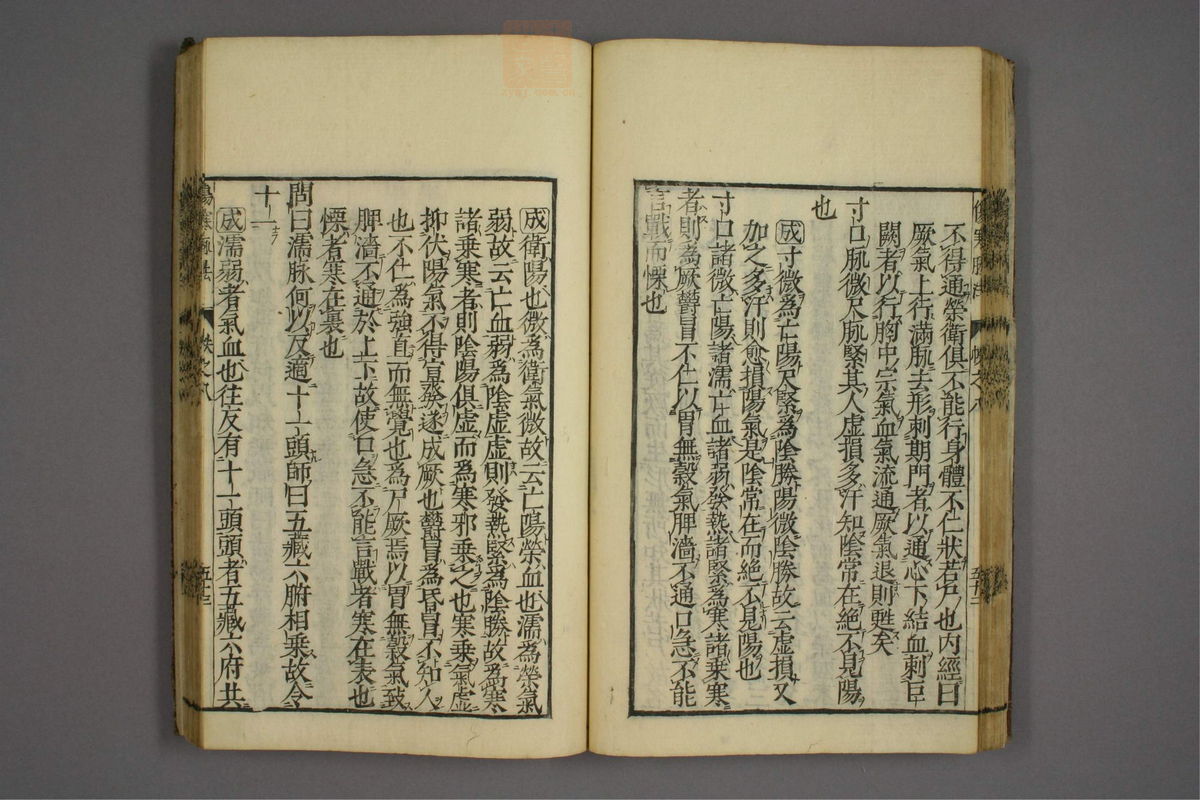 不得通榮衛俱不能行身體不仁狀若尸也內經曰
厥氣上行滿脉去形刺期門者以通心下結血刺巨
闕者以行胸中宗氣血氣流通厥氣退則甦矣
寸口脉微尺脉緊其人虚損多汗知陰常在絕不見陽
也
成寸微爲亡陽尺緊爲陰勝陽微陰勝故云虚損又
加之多汗則愈損陽氣是陰常在而絕不見陽也
寸口諸微亡陽諸濡亡血諸弱發熱諸緊爲寒諸乗寒
者則爲厥鬱冒不仁以胃無穀氣脾濇不通口急不能
言戰而慄也
成衛陽也微爲衛氣微故云亡陽榮血也濡爲榮氣
弱故云亡血弱爲陰虚虚則發熱緊爲陰勝故爲寒
諸乗寒者則陰陽俱虚而爲寒邪乗之也寒乗氣虚
抑伏陽氣不得宣發遂成厥也鬱冒爲昏冒不知人
也不仁爲強直而無覺也爲尸厥焉以胃無穀氣致
脾濇不通於上下故使口急不能言戰者寒在表也
慄者寒在裏也
問曰濡脉何以反適十一頭師曰五藏六腑相乗故令
十一
成濡弱者氣血也往反有十一頭頭者五藏六府共
傷寒脉法
帙之八
五十三